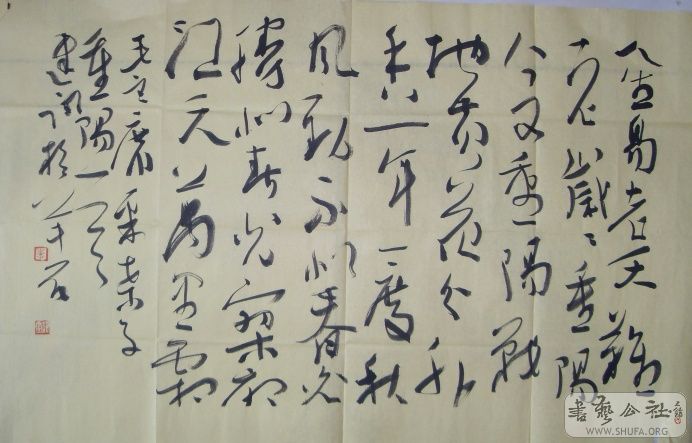 人生易老天難
老歲々重陽
今又重陽戰
地黃花分外
香一年一度秋
風勁不似春光
勝似春光寥廓
江天萬里霜
毛主席采桑子
重陽一首
書藝公社
WWW.SHUFA.ORG